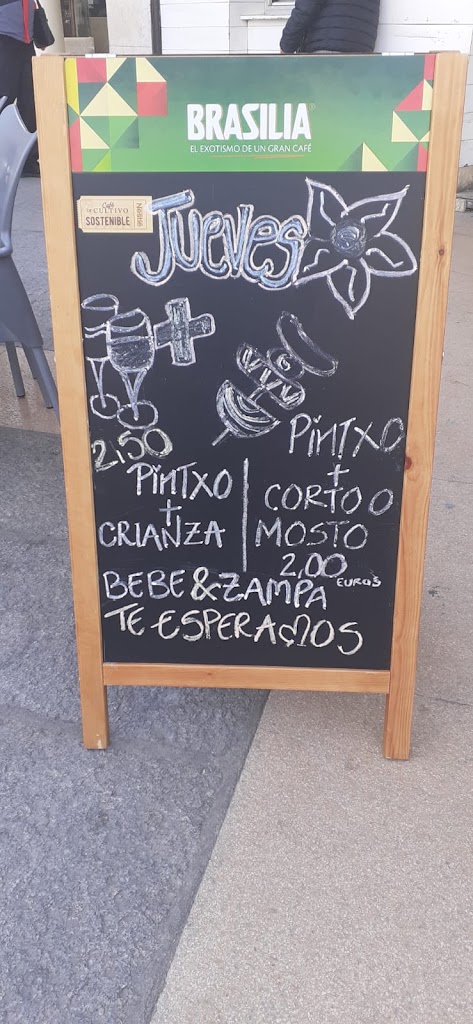 BRASILIA
EL EXOTISMO DE UN GRAN CAFÉ
Café
de CULTIVO
SOSTENIBLE
Jueves
2,50
PiNTXO
+
CRIANZA
PiNTXO
+
CORTO O
MOSTO
2,00
EUROS
BEBE & ZAMPA
TE ESPERAMOS